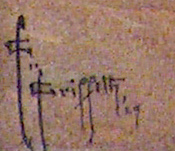 F. Griffith '29